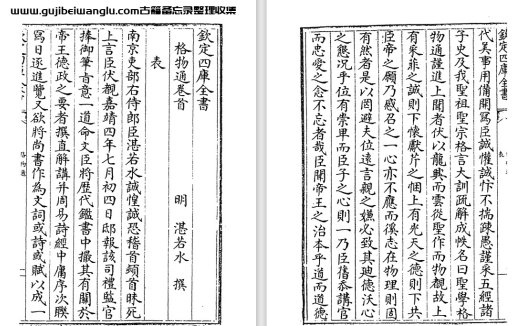 www.gujibeiwanglu.com古籍备忘录整理收集
欽定四庫全書
格物通卷首
明 湛若水 撰
表
南京吏部右侍郎臣湛若水誠惶誠恐稽首頓首昧死
上言臣伏覩嘉靖四年七月初四日邸報該司禮監官
捧御筆旨意一道命文臣將歷代鑑書中撮其有關於
帝王德政之要者撰直解講并周易詩經中庸序次聯
寫日逐進覽又欲將尚書作為文詞或詩或賦以成一
代美事用備開寫臣誠懽誠忭不揣疎愚謹采五經諸
子史及我聖祖聖宗格言大訓疏解成帙名曰聖學格
物通謹進上聞者伏以龍興而雲從聖作而物覩故上
有采菲之誠則下懷獻芹之悃上有光天之德則下共
臣帝之願乃感召之一心亦不應而徯志在物理則固
有然者是以罔避夫位遠言親之嫌必致其廸德沃心
之懇況乎位有崇卑而臣子之心則一乃臣舊忝講官
而忠愛之念不忘者哉臣聞帝王之治本乎道而道德
欽定四庫全書